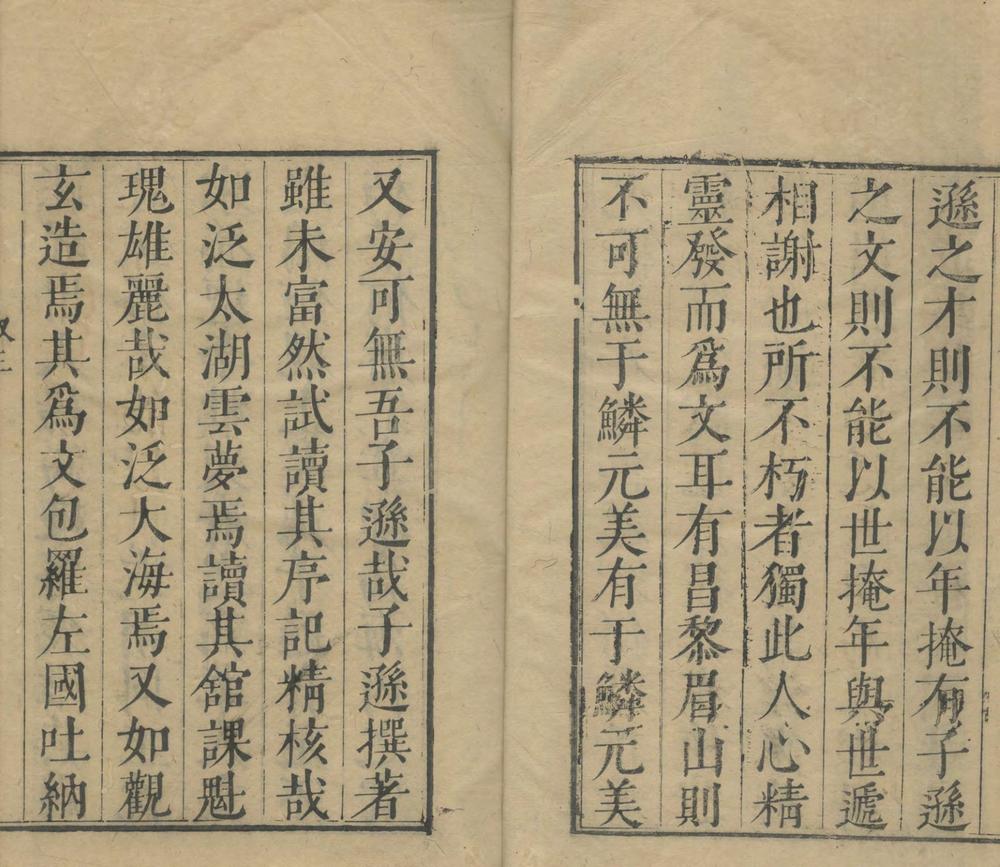 遜之才則不能以年掩有子遜
之文則不能以世掩年與世遞
相謝也所不朽者獨此人心精
靈發而爲文耳有昌黎眉山則
不可無于鱗元美有于鱗元美
又安可無吾子遜哉子遜撰著
雖未富然試讀其序記精核哉
如泛太湖雲夢焉讀其舘課魁
瑰雄麗哉如泛大海焉又如觀
玄造焉其爲文包羅左國吐納